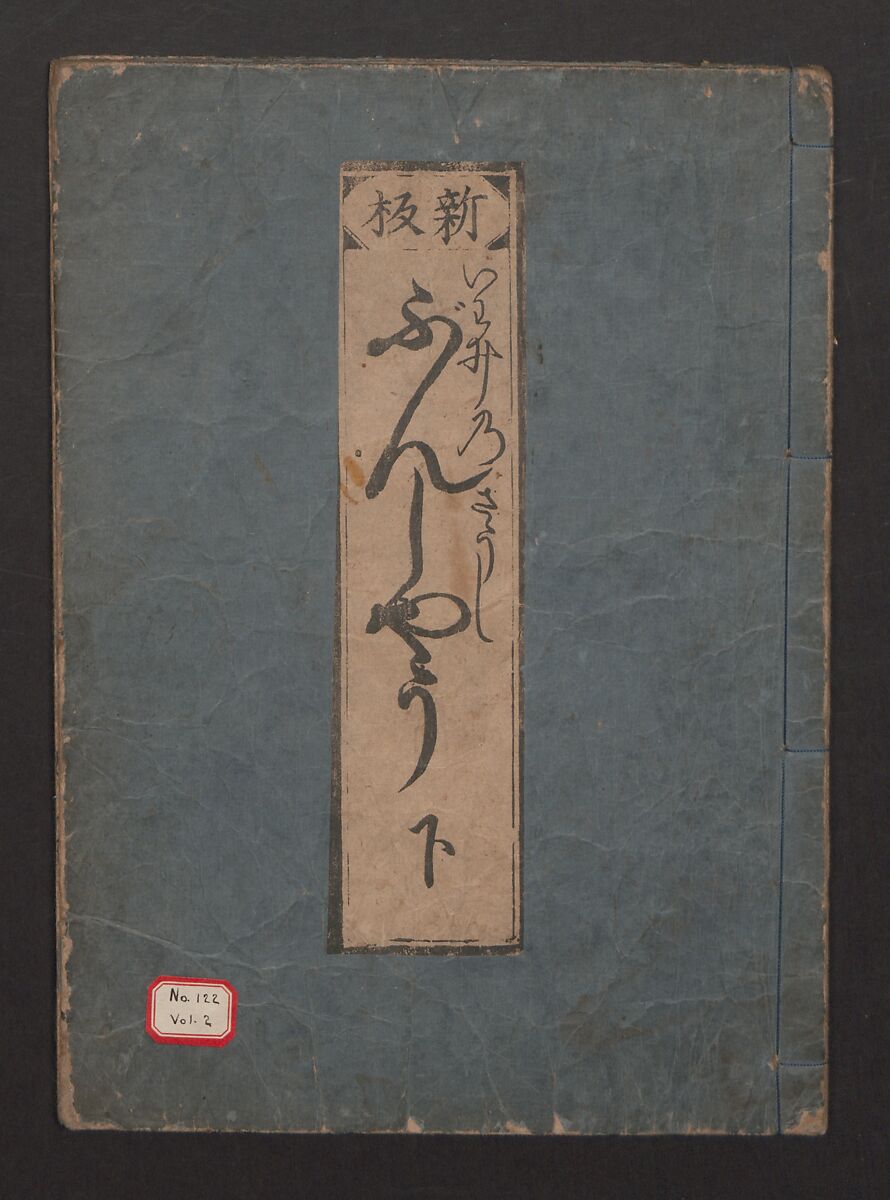 新板
いわ井乃さうし
ぶんしやう 下
No. 122
Vol. 2